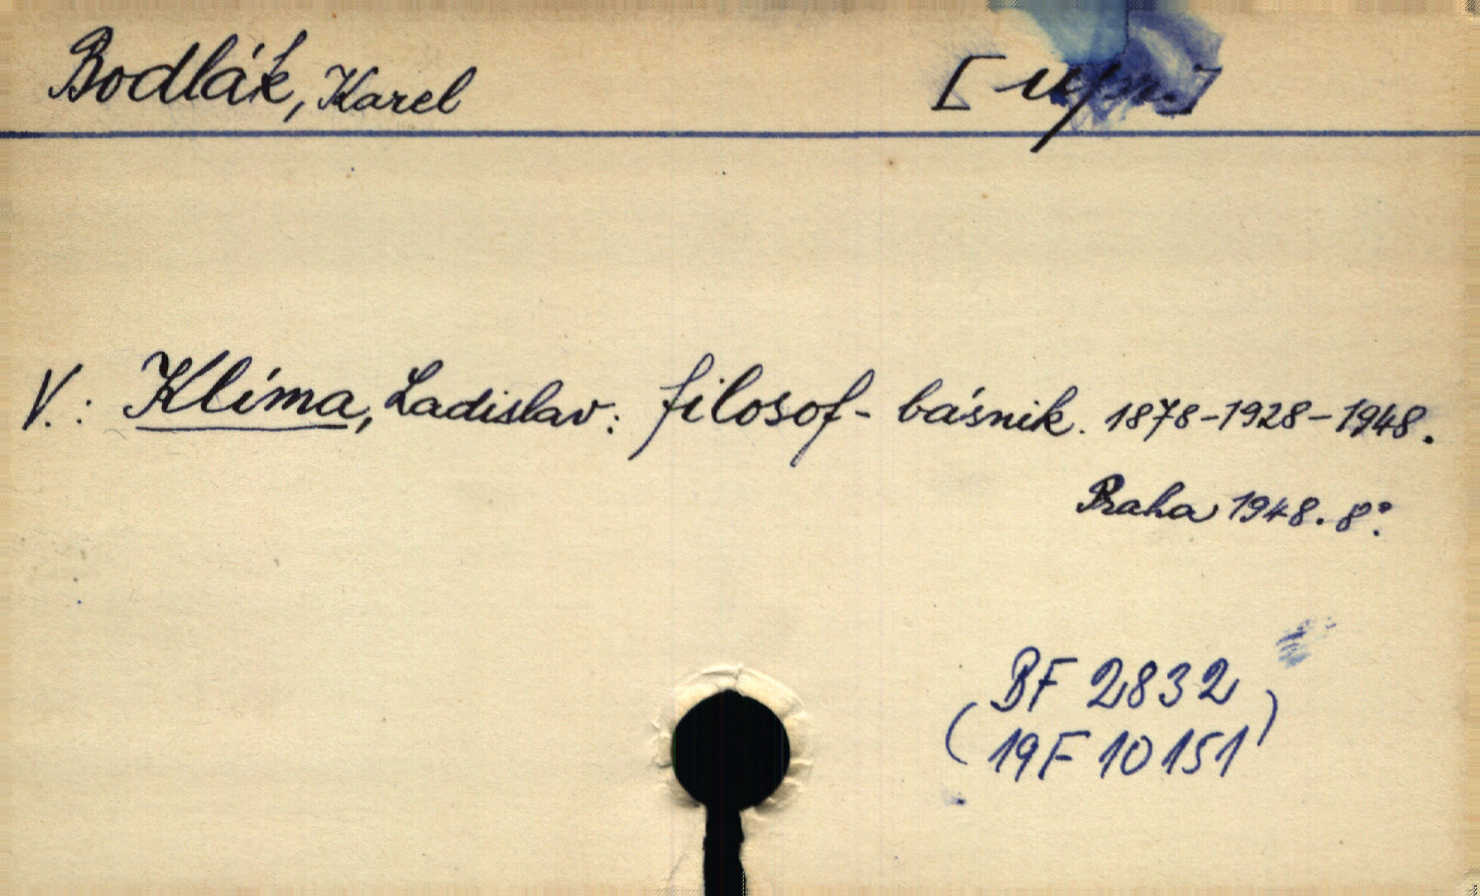 Bodlák, Karel [upr.]
V.: Klíma, Ladislav: filosof - básník. 1878-1928-1948.
Praha 1948. 8°.
BF 2832
(19F 10151)